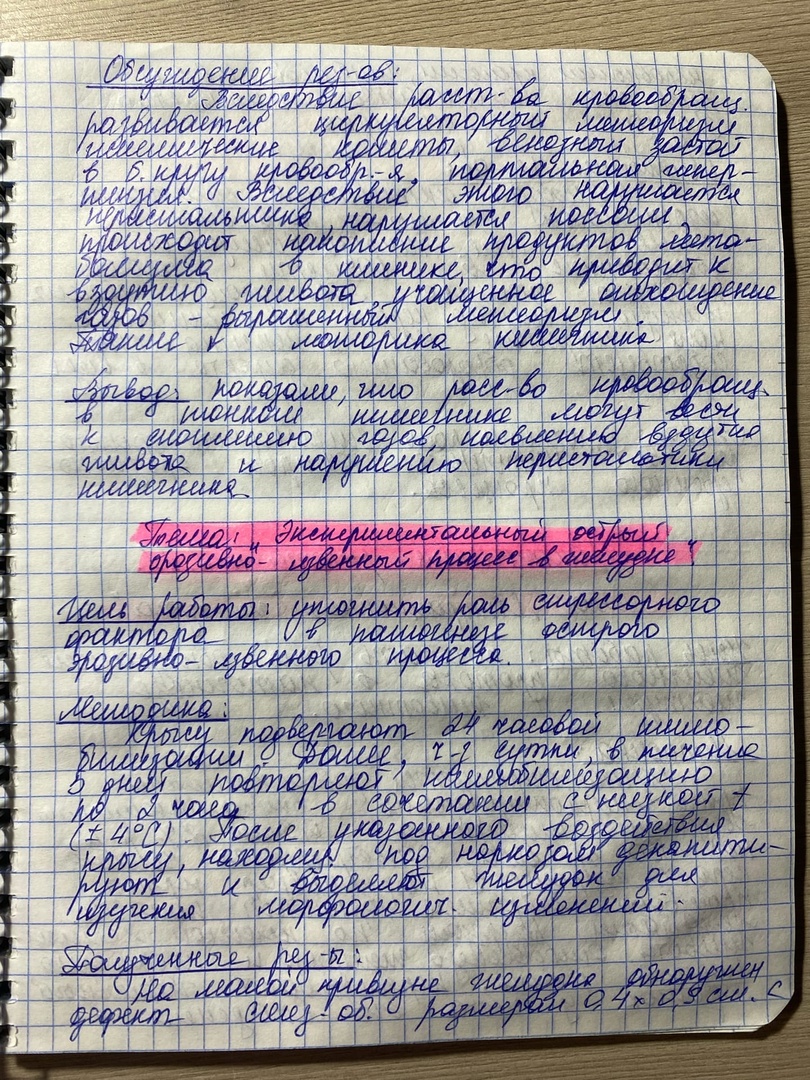 Обсуждение рез-ов:
Вследствие расст-ва кровообращ.
развивается циркуляторный метеоризм
ишемические комегты, венозный застой
в б. кругу кровообр-я, портальная гипер-
тензия. Вследствие этого нарушается
перистальтика, нарушается пассаж,
происходит накопление продуктов мета-
болизма в кишечнике, что приводит к
вздутию живота, учащенное отхождение
газов – выраженный метеоризм.
↓ моторика кишечника
Вывод: показали, что расс-во кровообращ.
в тонком кишечнике могут вести
к скоплению газов, появлению вздутия
живота и нарушению перистальтики
кишечника
Тема: "Экспериментальный острый
эрозивно- язвенный процесс в желудке"
Цель работы: уточнить роль стрессорного
фактора в патогенезе острого
эрозивно- язвенного процесса.
Методика:
Крысу подвергают 24 часовой иммо-
билизации. Далее, ч-з сутки, в течение
5 дней повторяют иммобилизацию
по 2 часа в сочетании с низкой t
(+ 4°С). После указанного воздействия
крысу, находящ. под наркозом декапити-
руют и выделяют желудок для
изучения морфологич. изменений.
Полученные рез-ы:
На малой кривизне желудка обнаружен
дефект слиз. об. размером 0,4 x 0,3 см. с